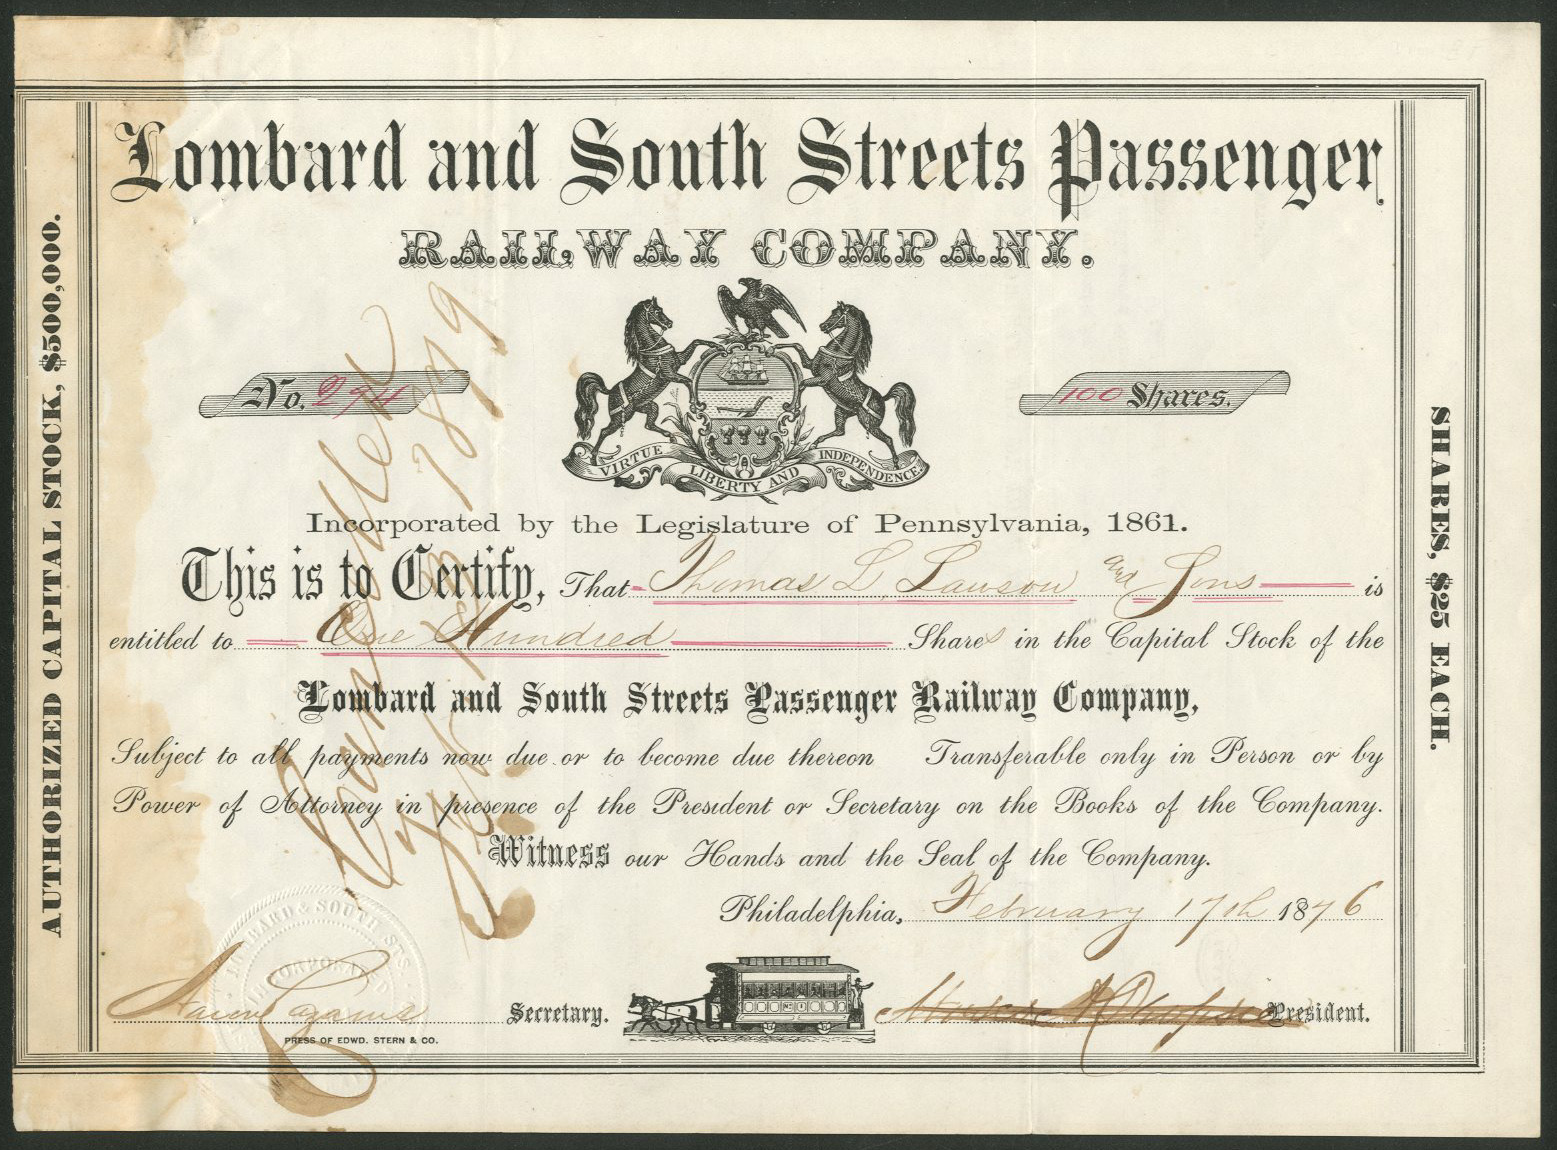 Lombard and South Streets Passenger
RAILWAY COMPANY.
No. 294
100 Shares.
VIRTUE LIBERTY AND INDEPENDENCE
Incorporated by the Legislature of Pennsylvania, 1861.
This is to Certify, That Thomas L. Lawson and Sons is
entitled to One Hundred Shares in the Capital Stock of the
Lombard and South Streets Passenger Railway Company,
Subject to all payments now due or to become due thereon Transferable only in Person or by
Power of Attorney in presence of the President or Secretary on the Books of the Company.
Witness our Hands and the Seal of the Company.
Philadelphia, February 17th 1876
Secretary.
President.
PRESS OF EDWD. STERN & CO.
AUTHORIZED CAPITAL STOCK, $500,000.
SHARES, $25 EACH.
Cancelled
1879
LOMBARD & SOUTH STS.
INCORPORATED